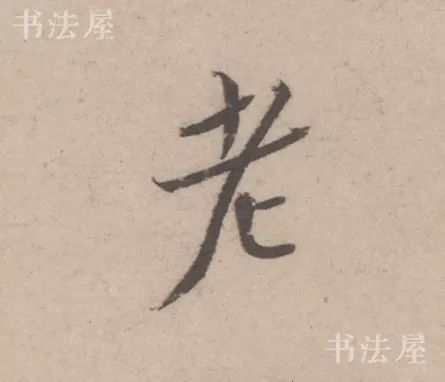 书法屋
老
书法屋